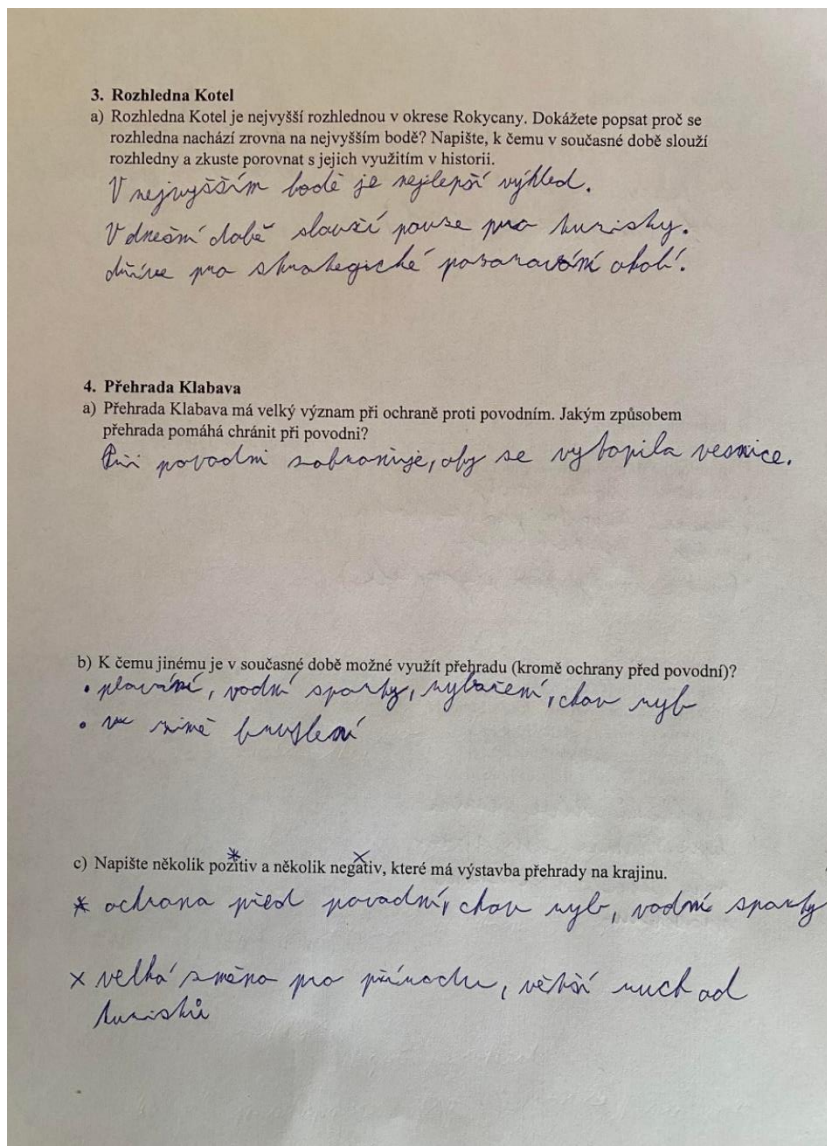 3. Rozhledna Kotel
a) Rozhledna Kotel je nejvyšší rozhlednou v okrese Rokycany. Dokážete popsat proč se
rozhledna nachází zrovna na nejvyšším bodě? Napište, k čemu v současné době slouží
rozhledny a zkuste porovnat s jejich využitím v historii.
V nejvyšším bodě je nejlepší výhled.
V dnešní době slouží pouze pro turisty.
dříve pro strategické pozorování okolí.
4. Přehrada Klabava
a) Přehrada Klabava má velký význam při ochraně proti povodním. Jakým způsobem
přehrada pomáhá chránit při povodni?
Při povodni zabraňuje, aby se vytopila vesnice.
b) K čemu jinému je v současné době možné využít přehradu (kromě ochrany před povodní)?
• plavání, vodní sporty, rybaření, chov ryb
• v zimě bruslení
c) Napište několik pozitiv a několik negativ, které má výstavba přehrady na krajinu.
* ochrana před povodní, chov ryb, vodní sporty
x velká změna pro přírodu, větší ruch od
turistů